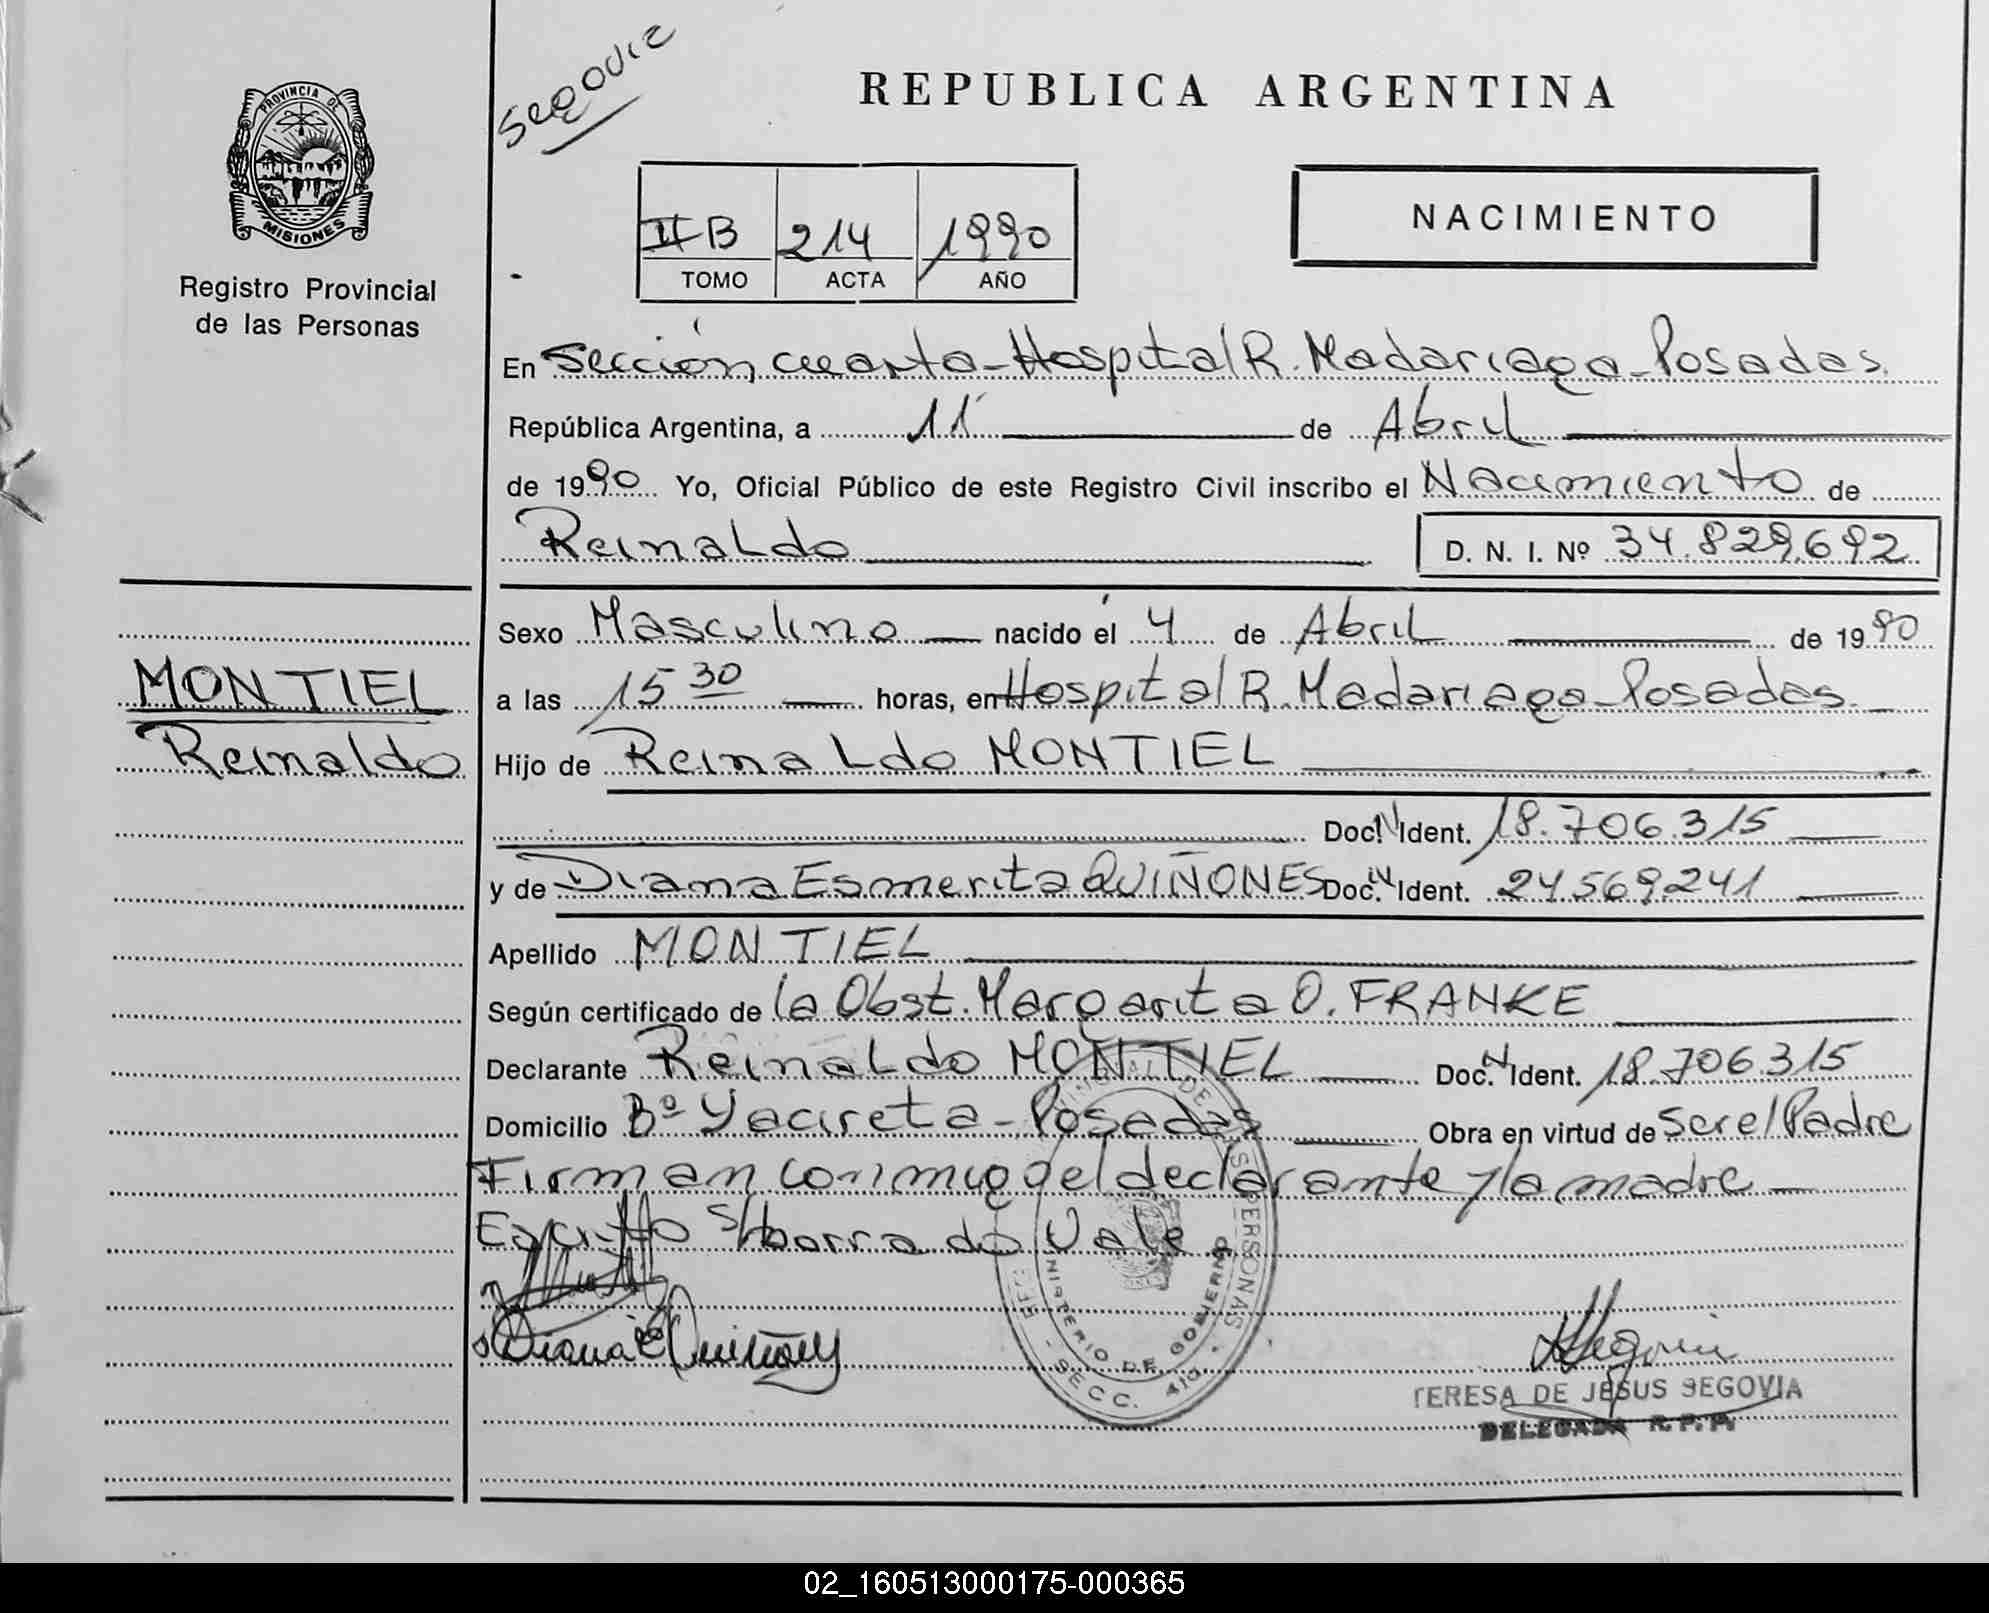 Segovia
REPUBLICA ARGENTINA
PROVINCIA DE
MISIONES
Registro Provincial
de las Personas
II B 214 1990
TOMO ACTA AÑO
NACIMIENTO
En Sección cuarta - Hospital R. Madariaga - Posadas
República Argentina, a 11 de Abril
de 1990 Yo, Oficial Público de este Registro Civil inscribo el Nacimiento de
Reinaldo D. N. I. Nº 34.829.692
Sexo Masculino nacido el 4 de Abril de 1990
MONTIEL
Reinaldo
a las 15 30 horas, en Hospital R. Madariaga - Posadas
Hijo de Reinaldo MONTIEL
Doc. N Ident. 18.706.315
y de Diana Esmerita QUIÑONES Doc. N Ident. 24.569.241
Apellido MONTIEL
Según certificado de la Obst. Margarita O. FRANKE
Declarante Reinaldo MONTIEL Doc. N Ident. 18.706.315
Domicilio Bº Yacireta - Posadas Obra en virtud de ser el Padre
Firman conmigo el declarante y la madre
Escrito s/borrado Vale
Diana E Quiñones
DE LAS PERSONAS
MINISTERIO DE GOBIERNO
SECC. 4ta.
Segovia
TERESA DE JESUS SEGOVIA
DELEGADA R. P. P.
02_160513000175-000365